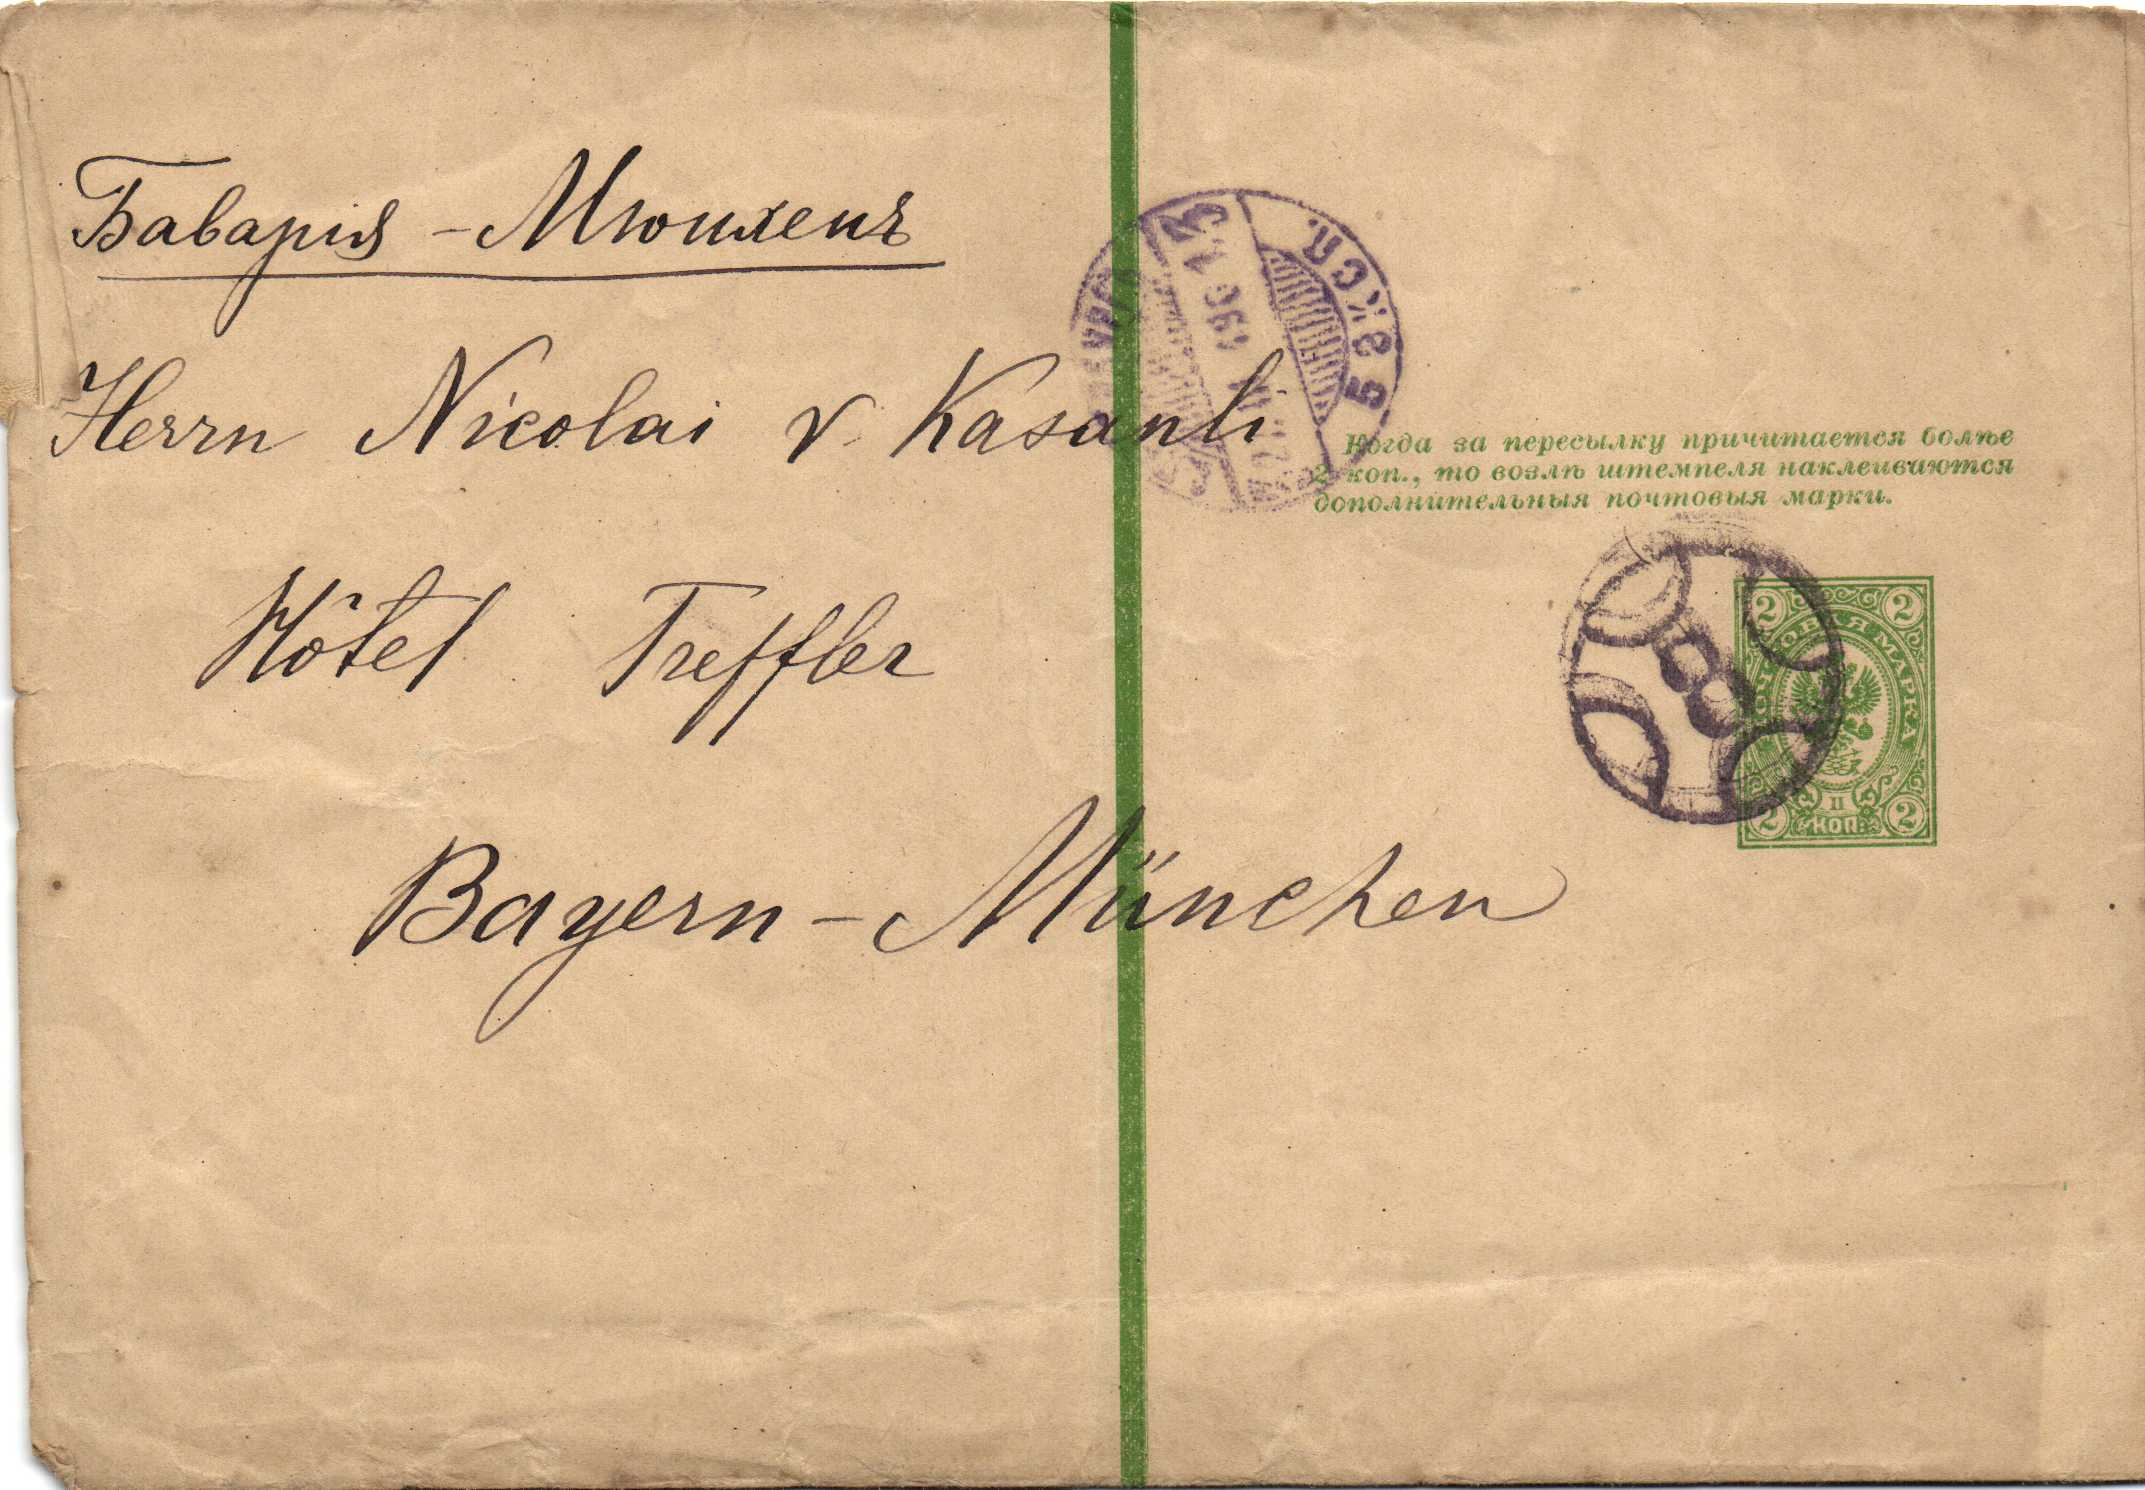 Баварія - Мюнхенъ
Herrn Nicolai v. Kasanli
Hôtel Treffler
Bayern - München
5 ЭКСП.
Когда за пересылку причитается болѣе
2 коп., то возлѣ штемпеля наклеиваются
дополнительныя почтовыя марки.
2 2
ПОЧТОВАЯ МАРКА
II
2 КОП. 2